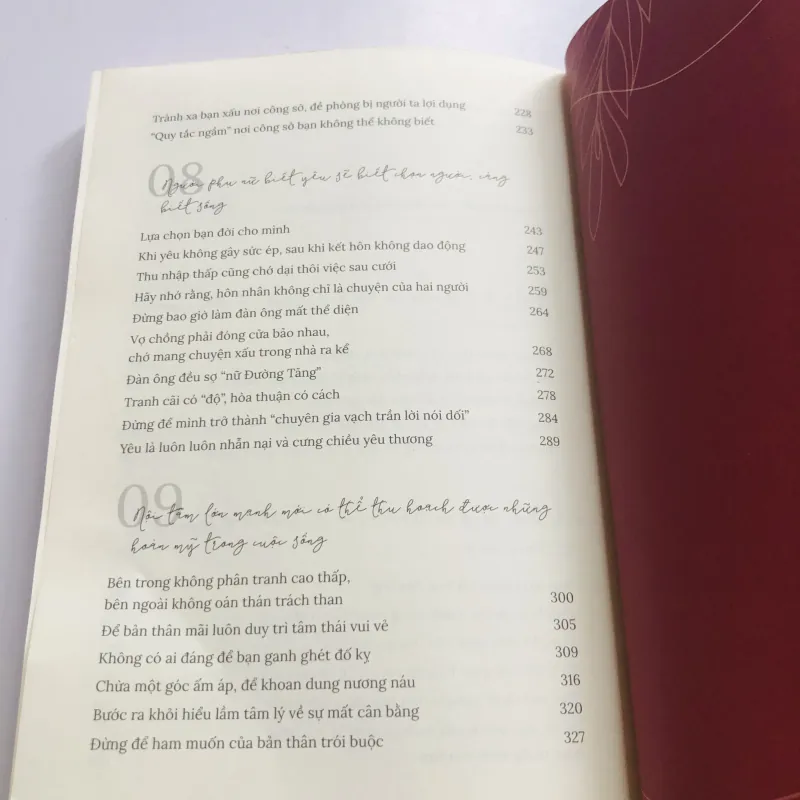 Tránh xa bạn xấu nơi công sở, đề phòng bị người ta lợi dụng 228
"Quy tắc ngầm" nơi công sở bạn không thể không biết 233
08
Người phụ nữ biết yêu sẽ biết chọn người, càng
biết sống
Lựa chọn bạn đời cho mình 243
Khi yêu không gây sức ép, sau khi kết hôn không dao động 247
Thu nhập thấp cũng chớ dại thôi việc sau cưới 253
Hãy nhớ rằng, hôn nhân không chỉ là chuyện của hai người 259
Đừng bao giờ làm đàn ông mất thể diện 264
Vợ chồng phải đóng cửa bảo nhau,
chớ mang chuyện xấu trong nhà ra kể 268
Đàn ông đều sợ "nữ Đường Tăng" 272
Tranh cãi có "độ", hòa thuận có cách 278
Đừng để mình trở thành "chuyên gia vạch trần lời nói dối" 284
Yêu là luôn luôn nhẫn nại và cưng chiều yêu thương 289
09
Nội tâm lớn mạnh mới có thể thu hoạch được những
hoàn mỹ trong cuộc sống
Bên trong không phân tranh cao thấp,
bên ngoài không oán thán trách than 300
Để bản thân mãi luôn duy trì tâm thái vui vẻ 305
Không có ai đáng để bạn ganh ghét đố kỵ 309
Chừa một góc ấm áp, để khoan dung nương náu 316
Bước ra khỏi hiểu lầm tâm lý về sự mất cân bằng 320
Đừng để ham muốn của bản thân trói buộc 327